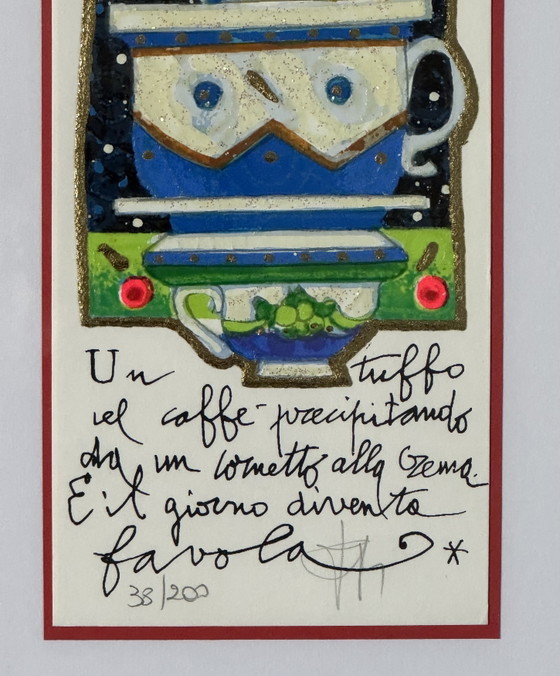 Un tuffo
nel caffè precipitando
da un cornetto alla Crema.
E il giorno diventa
favola *
38/200